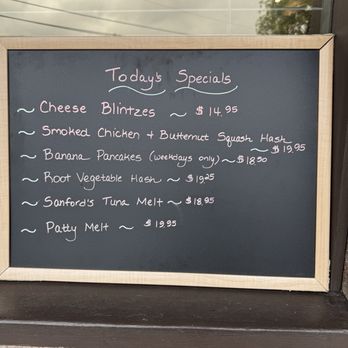 Today's Specials
~ Cheese Blintzes ~ $14.95
~ Smoked Chicken + Butternut Squash Hash
~ $19.95
~ Banana Pancakes (weekdays only) ~ $18.50
~ Root Vegetable Hash ~ $19.25
~ Sanford's Tuna Melt ~ $18.95
~ Patty Melt ~ $19.95